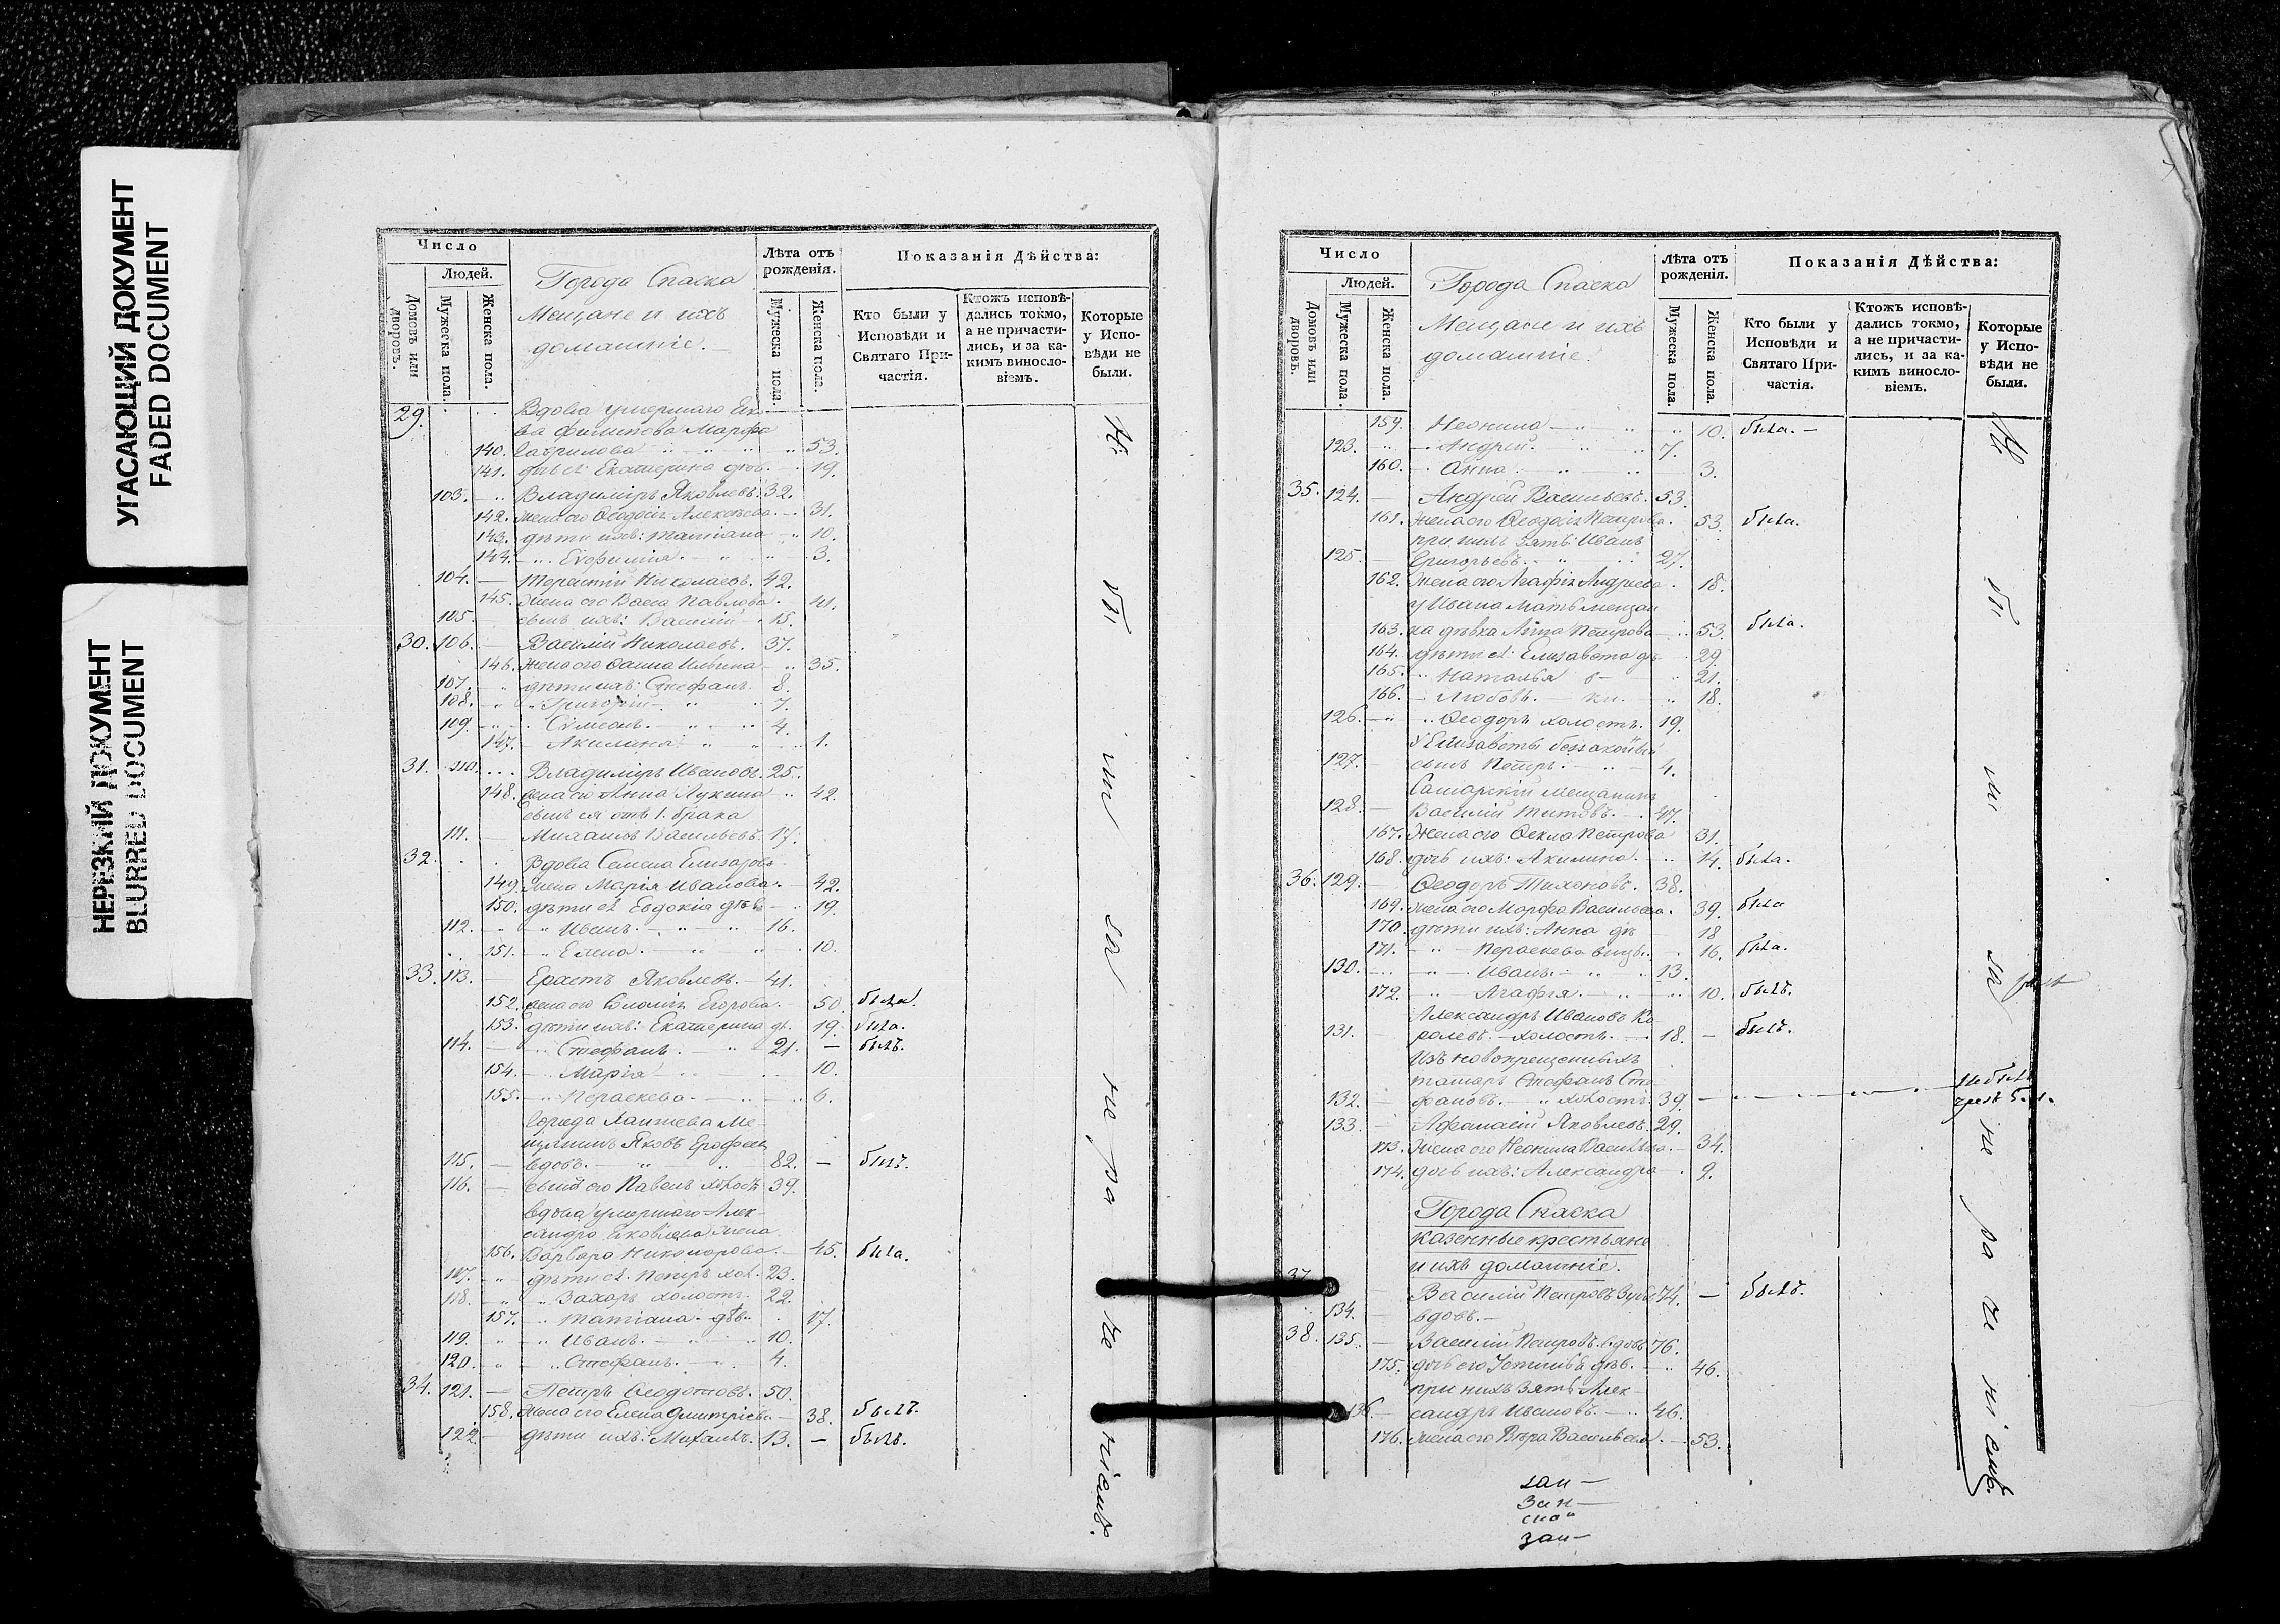 УГАСАЮЩИЙ ДОКУМЕНТ
FADED DOCUMENT
НЕРЕЗКИЙ ДОКУМЕНТ
BLURRED DOCUMENT
Число
Людей.
Домовъ или дворовъ.
Мужеска пола.
Женска пола.
Города Спаска
Мещане и ихъ
домашніе.
Лѣта отъ рожденія.
Мужеска пола.
Женска пола.
Показанія Дѣйства:
Кто были у Исповѣди и Святаго Причастія.
Ктожъ исповѣдались токмо, а не причастились, и за какимъ винословіемъ.
Которые у Исповѣди не были.
29. Вдова умершаго
Филипова Марфа
140. Гаврилова 53.
141. Екатерина дѣв. 19.
103. Владиміръ Яковлевъ. 32.
142. жена его Ѳеодосія Алексѣева. 31.
143. дѣти ихъ: Татіана 10.
144. Евфимія 3.
104. Терентій Николаевъ. 42.
145. жена его Васса Павлова. 41.
105. сынъ ихъ: Василій 15.
30. 106. Василій Николаевъ. 37.
146. жена его Ильина 35.
107. дѣти ихъ: Стефанъ 8.
108. Григорій 7.
109. Сѵмеонъ. 4.
147. Акилина 1.
31. 110. Владиміръ Ивановъ. 25.
148. жена его Анна Лукина 42.
сынъ ея отъ 1. брака
111. Михаилъ Васильевъ. 17.
32. Вдова Семена Елизарова
149. жена Марія Иванова. 42.
150. дѣти ея Евдокія дѣв. 19.
112. Иванъ. 16.
151. Елена. 10.
33. 113. Ерастъ Яковлевъ. 41.
152. жена его Егорова. 50. была.
153. дѣти ихъ: Екатерина д. 19. была.
114. Стефанъ. 21. былъ.
154. Марія 10.
155. Параскева. 6.
Города Лаишева Ме-
щанинъ Яковъ Ерофеев
115. вдовъ. 82. былъ.
116. сынъ его Павелъ холост 39.
вдова умершаго Алек-
сандра Яковлева жена
156. Варвара Никонорова. 45. была.
117. дѣти ея. Петръ хол. 23.
118. Захаръ холостъ. 22.
157. Татіана дѣв. 17.
119. Иванъ. 10.
120. Стефанъ. 4.
34. 121. Петръ Ѳеодотовъ. 50.
158. жена его Елена Дмитріева 38. былъ.
122. дѣти ихъ: Михаилъ. 13. былъ.
Число
Людей.
Домовъ или дворовъ.
Мужеска пола.
Женска пола.
Города Спаска
Мещане и ихъ
домашніе.
Лѣта отъ рожденія.
Мужеска пола.
Женска пола.
Показанія Дѣйства:
Кто были у Исповѣди и Святаго Причастія.
Ктожъ исповѣдались токмо, а не причастились, и за какимъ винословіемъ.
Которые у Исповѣди не были.
159. Неонила 10. была.
123. Андрей. 7.
160. Анна 3.
35. 124. Андрей Васильевъ. 53.
161. жена его Ѳеодосія Петрова. 53. была.
при нихъ зять Иванъ
125. Григорьевъ. 27.
162. жена его Агафія Андреева. 18.
у Ивана мать мещан
163. ка дѣвка Анна Петрова 53. была.
164. дѣти ея: Елизавета дѣ 29.
165. Наталья 21.
166. Любовь. 18.
126. Ѳеодоръ холостъ. 19.
у Елизаветы беззаконный
127. сынъ Петръ. 4.
Самарскій мещанинъ
128. Василій Титовъ. 47.
167. жена его Ѳекла Петрова 31.
168. дочь ихъ: Акилина. 14. была.
36. 129. Ѳеодоръ Тихоновъ. 38.
169. жена его Марфа Васильева. 39. была
170. дѣти ихъ: Анна дѣ 18
171. Параскева 16. была.
130. Иванъ. 13.
172. Агафія. 10. былъ.
Александръ Ивановъ Ко
131. ролевъ. холостъ. 18. былъ.
Изъ новокрещенныхъ
татаръ Стефанъ Сте
132. фановъ. холостъ. 39. не былъ
133. Афанасій Яковлевъ. 29.
173. жена его Неонила Васильева. 34.
174. дочь ихъ: Александра 2.
Города Спаска
казенные крестьяне
и ихъ домашніе.
37. Василій Петровъ 74. былъ.
134. вдовъ.
38. 135. Василій Петровъ вдовъ 76.
175. дочь его дѣв. 46.
при нихъ зять Алек-
136. сандръ Ивановъ. 46.
176. жена его Вѣра Васильева. 53.